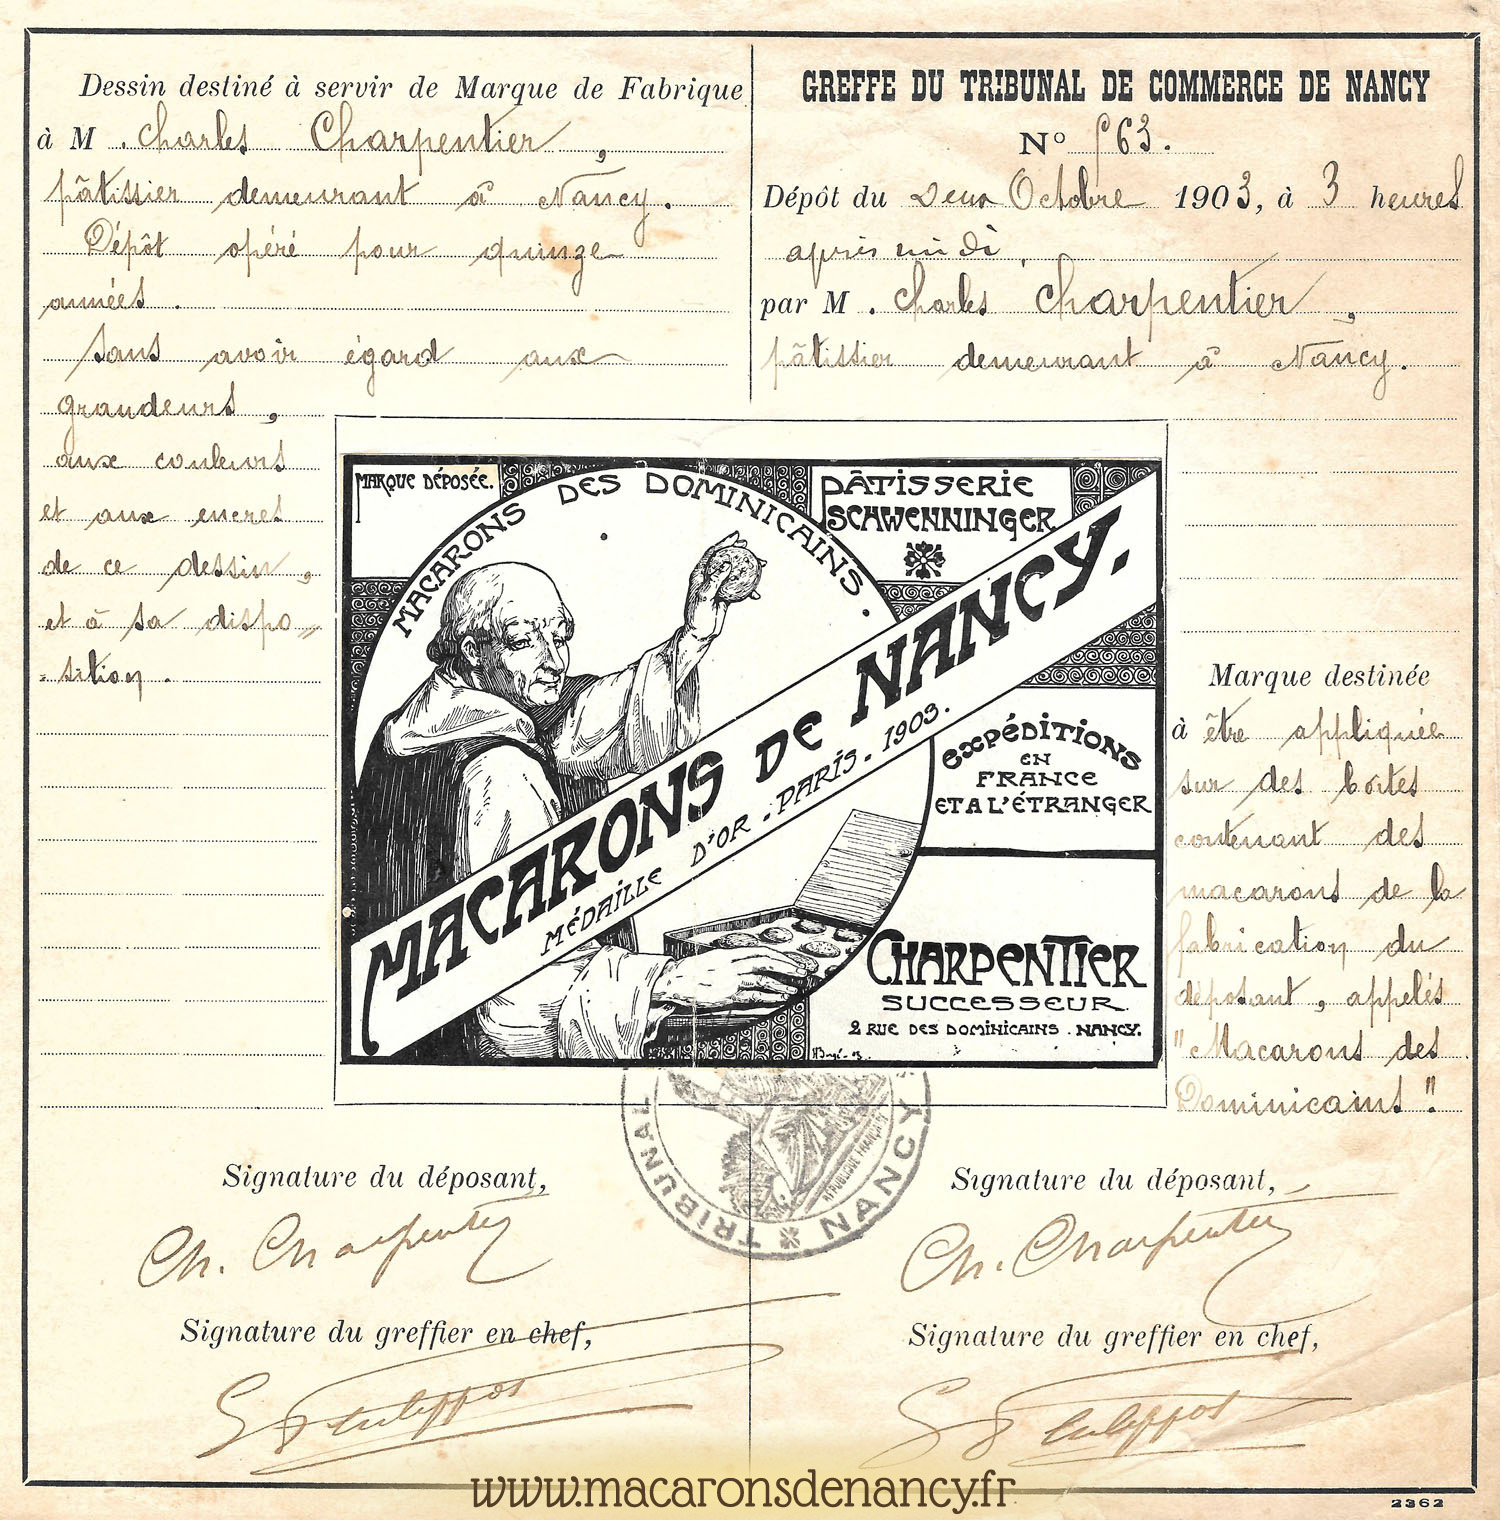 Dessin destiné à servir de Marque de Fabrique
à M . Charles Charpentier,
pâtissier demeurant à Nancy.
Dépôt opéré pour quinze
années.
Sans avoir égard aux
grandeurs,
aux couleurs
et aux encres
de ce dessin,
et à sa dispo=
=sition.
GREFFE DU TRIBUNAL DE COMMERCE DE NANCY
Nº 563.
Dépôt du deux Octobre 1903, à 3 heures
après midi,
par M . Charles Charpentier,
pâtissier demeurant à Nancy.
MARQUE DÉPOSÉE.
MACARONS DES DOMINICAINS.
PÂTISSERIE
SCHWENNINGER
MACARONS DE NANCY.
MÉDAILLE D'OR . PARIS . 1903.
EXPÉDITIONS
EN
FRANCE
ET A L'ÉTRANGER
CHARPENTIER
SUCCESSEUR
2 RUE DES DOMINICAINS . NANCY.
Marque destinée
à être appliquée
sur des boîtes
contenant des
macarons de la
fabrication du
déposant, appelés
"Macarons des
Dominicains".
TRIBUNAL * NANCY
RÉPUBLIQUE FRANÇAISE
Signature du déposant,
Ch. Charpentier
Signature du greffier en chef,
Signature du déposant,
Ch. Charpentier
Signature du greffier en chef,
www.macaronsdenancy.fr
2362